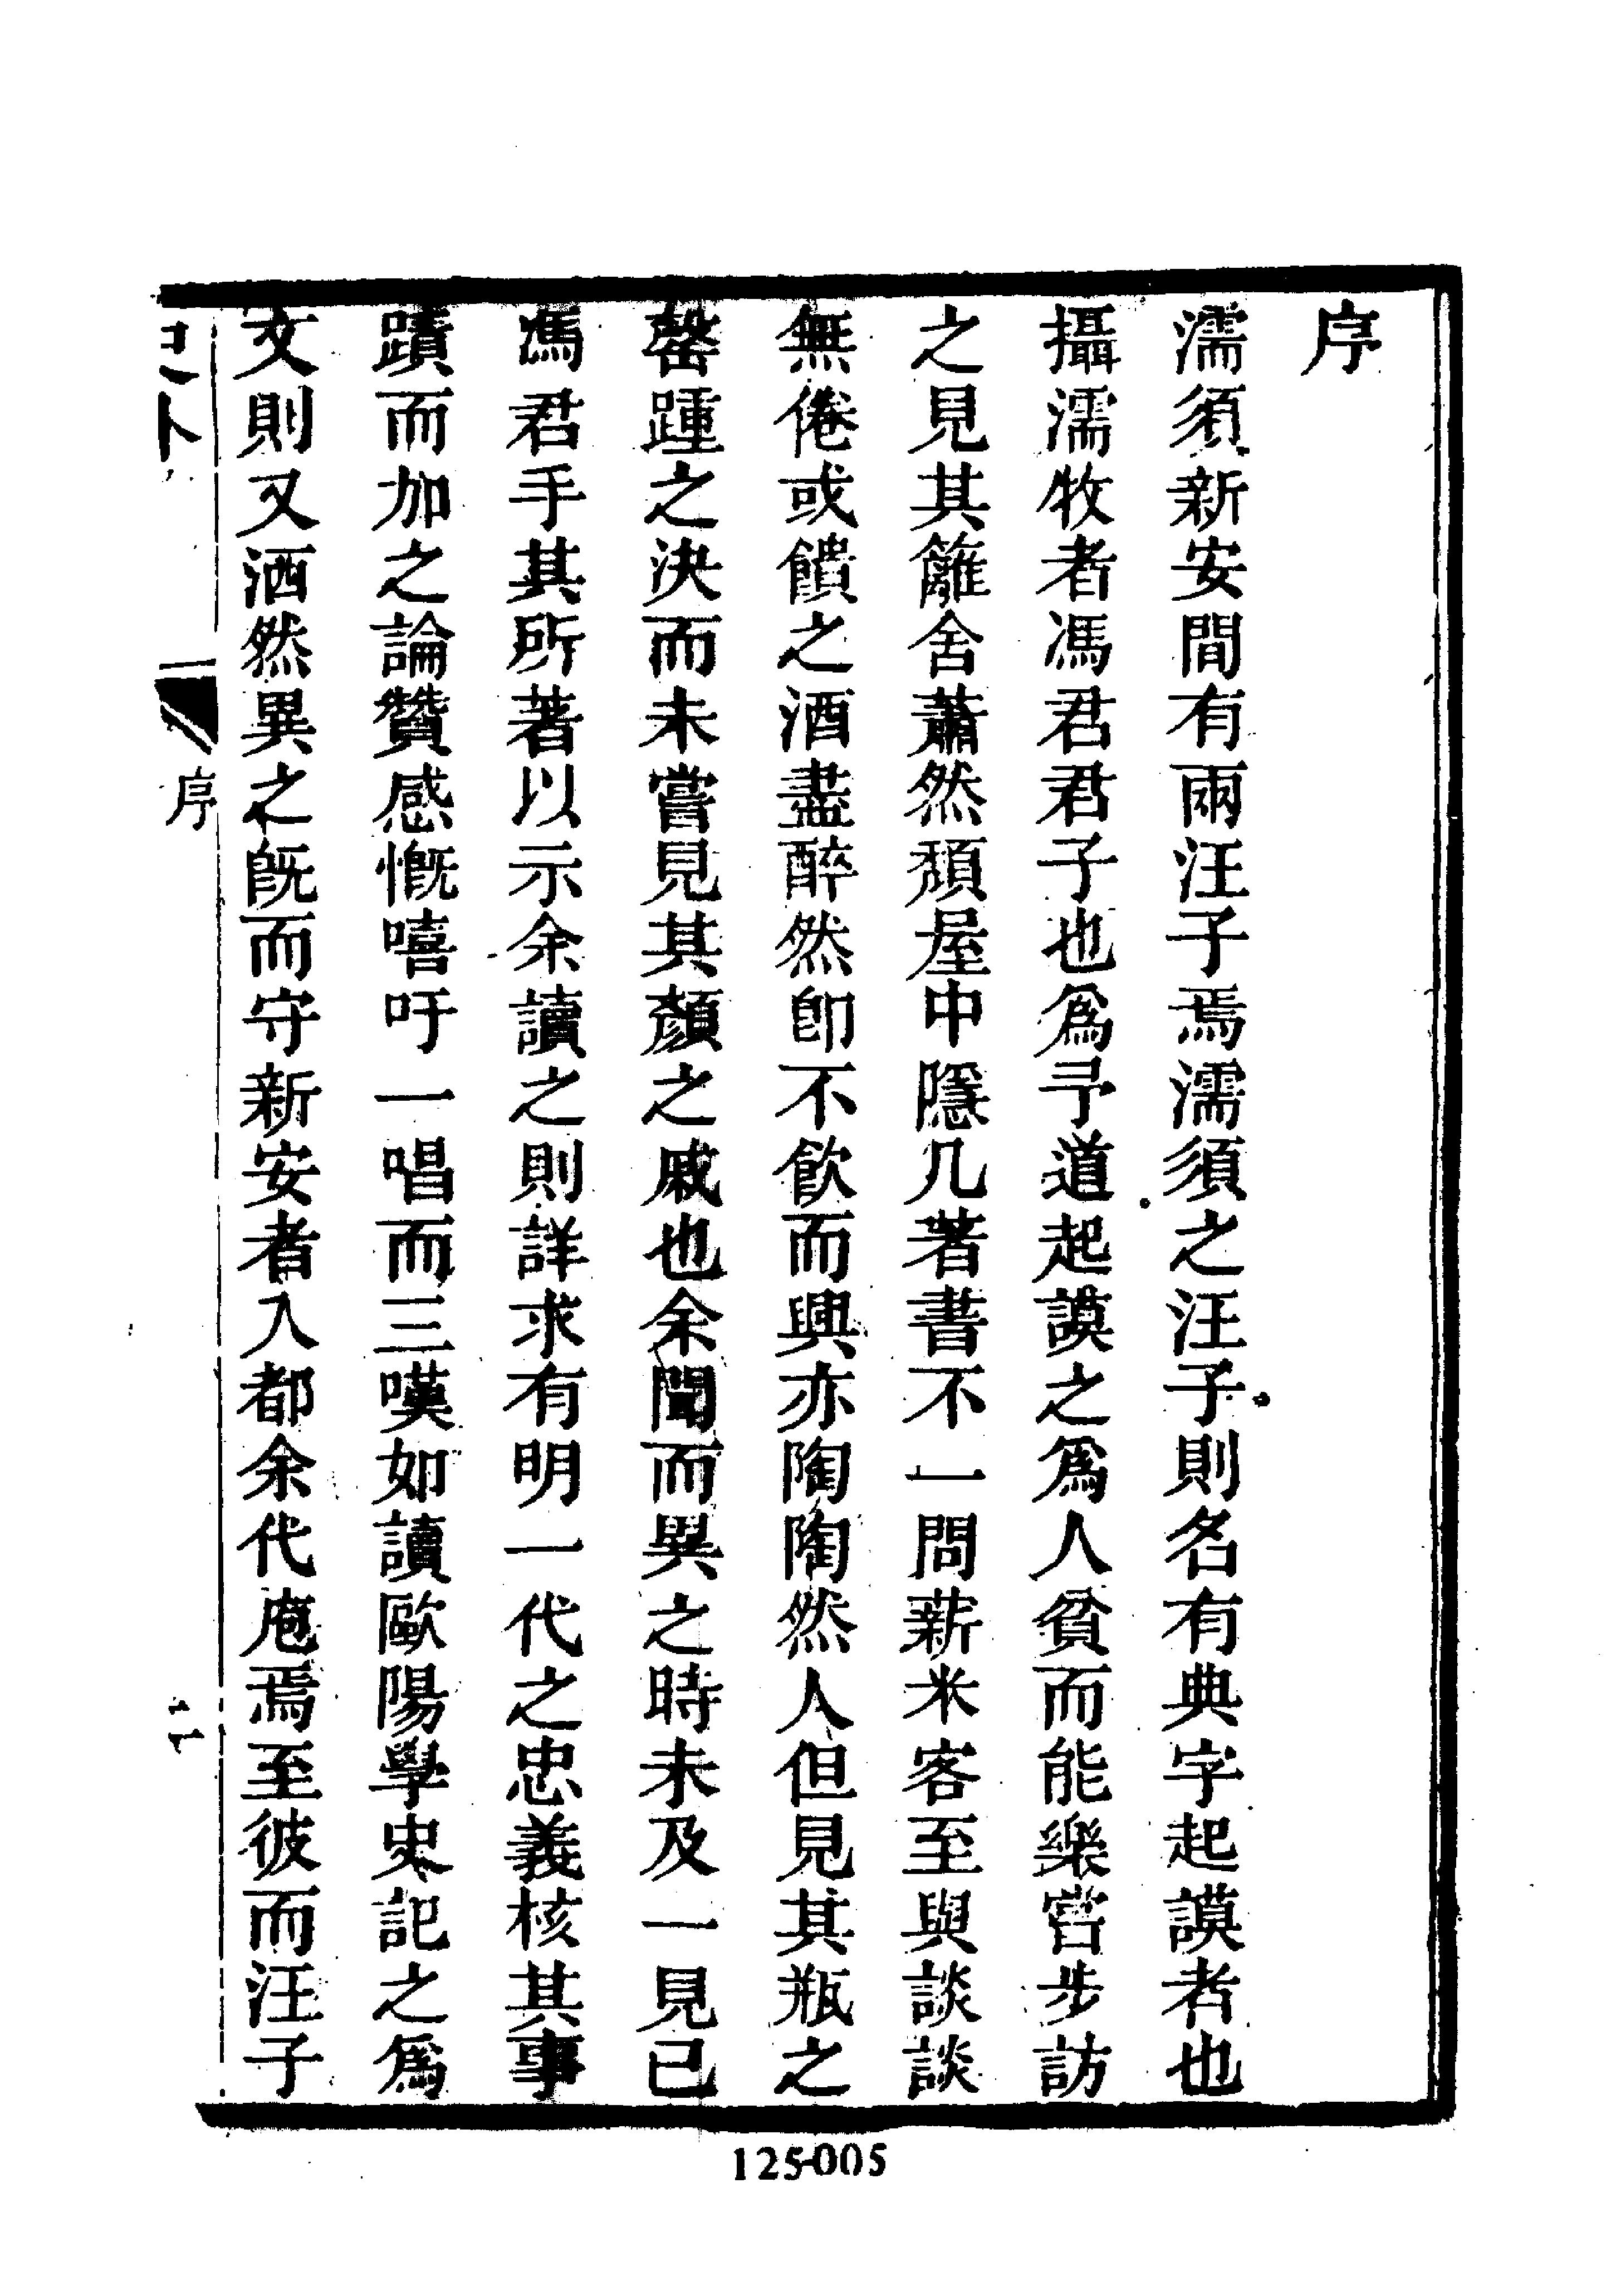 序
濡須新安間有兩汪子焉濡須之汪子則名有典字起謨者也
攝濡牧者馮君君子也爲予道起謨之爲人貧而能樂嘗步訪
之見其籬舍蕭然頹屋中隱几著書不一問薪米客至與談談
無倦或饋之酒盡醉然卽不飮而興亦陶陶然人但見其瓶之
罄踵之決而未嘗見其顏之戚也余聞而異之時未及一見已
馮君手其所著以示余讀之則詳求有明一代之忠義核其事
蹟而加之論贊感慨嘻吁一唱而三嘆如讀歐陽學史記之爲
文則又洒然異之旣而守新安者入都余代庖焉至彼而汪子
序
125-005